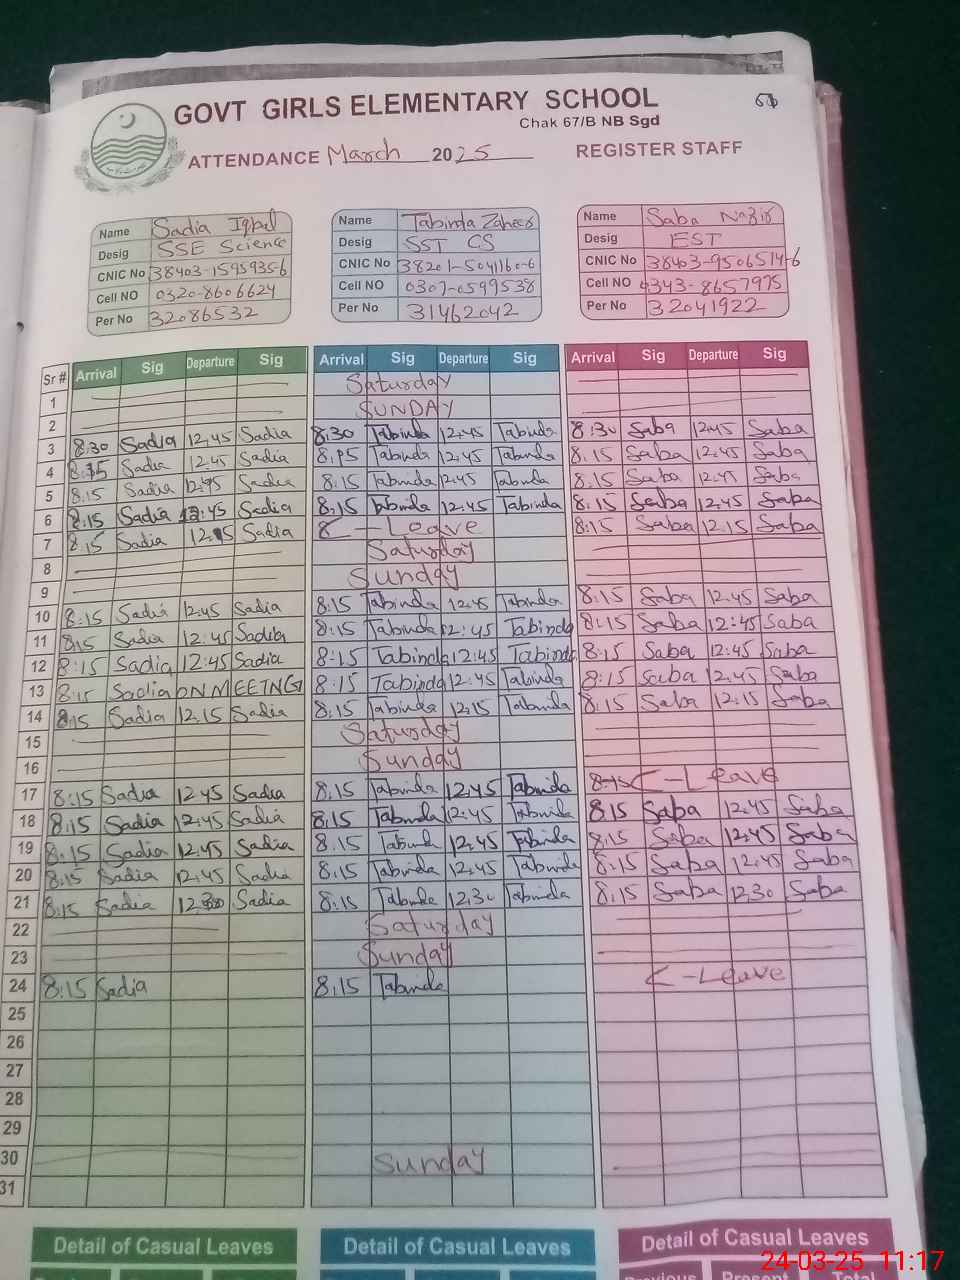 GOVT GIRLS ELEMENTARY SCHOOL
Chak 67/B NB Sgd
ATTENDANCE March 2025 REGISTER STAFF
Name Sadia Iqbal
Desig SSE Science
CNIC No 38403-1595935-6
Cell NO 0320-8606624
Per No 32086532
Name Tabinda Zaheer
Desig SST CS
CNIC No 38201-5041160-6
Cell NO 0307-0599538
Per No 31462042
Name Saba Nazir
Desig EST
CNIC No 38403-9506514-6
Cell NO 0343-8657975
Per No 32041922
Sr # Arrival Sig Departure Sig Arrival Sig Departure Sig Arrival Sig Departure Sig
1 Saturday
2 SUNDAY
3 8.30 Sadia 12.45 Sadia 8.30 Tabinda 12.45 Tabinda 8.30 Saba 12.45 Saba
4 8.15 Sadia 12.45 Sadia 8.15 Tabinda 12.45 Tabinda 8.15 Saba 12.45 Saba
5 8.15 Sadia 12.45 Sadia 8.15 Tabinda 12.45 Tabinda 8.15 Saba 12.45 Saba
6 8.15 Sadia 12:45 Sadia 8.15 Tabinda 12.45 Tabinda 8.15 Saba 12.45 Saba
7 8.15 Sadia 12.15 Sadia C-Leave 8:15 Saba 12.15 Saba
8 Saturday
9 Sunday
10 8:15 Sadia 12:45 Sadia 8:15 Tabinda 12:45 Tabinda 8:15 Saba 12:45 Saba
11 8:15 Sadia 12:45 Sadia 8:15 Tabinda 12:45 Tabinda 8:15 Saba 12:45 Saba
12 8:15 Sadia 12:45 Sadia 8:15 Tabinda 12:45 Tabinda 8:15 Saba 12:45 Saba
13 8:15 Sadia ON MEETNG 8:15 Tabinda 12:45 Tabinda 8:15 Saba 12.45 Saba
14 8:15 Sadia 12.15 Sadia 8:15 Tabinda 12.15 Tabinda 8:15 Saba 12:15 Saba
15 Saturday
16 Sunday
17 8:15 Sadia 12.45 Sadia 8.15 Tabinda 12.45 Tabinda 8:15 C-Leave
18 8:15 Sadia 12.45 Sadia 8.15 Tabinda 12.45 Tabinda 8.15 Saba 12.45 Saba
19 8:15 Sadia 12.45 Sadia 8.15 Tabinda 12.45 Tabinda 8.15 Saba 12.45 Saba
20 8:15 Sadia 12.45 Sadia 8.15 Tabinda 12.45 Tabinda 8.15 Saba 12.45 Saba
21 8:15 Sadia 12.30 Sadia 8.15 Tabinda 12.30 Tabinda 8.15 Saba 12.30 Saba
22 Saturday
23 Sunday
24 8:15 Sadia 8.15 Tabinda C-Leave
25
26
27
28
29
30 Sunday
31
Detail of Casual Leaves Detail of Casual Leaves Detail of Casual Leaves
Previous Present Total
24-03-25 11:17